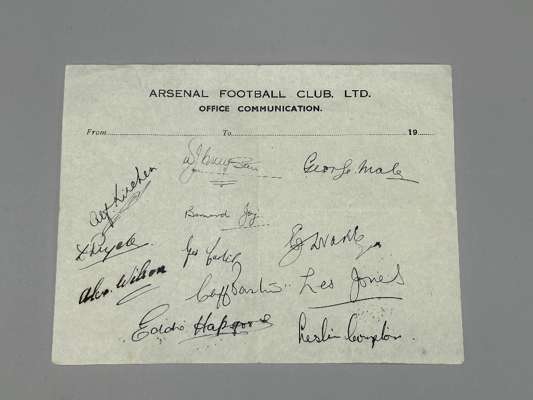 ARSENAL FOOTBALL CLUB. LTD.
OFFICE COMMUNICATION.
From To 19
George Male
Alf Kirchen
Bernard Joy
Alex. Wilson
Cliff Bastin
Les Jones
Eddie Hapgood
Leslie Compton